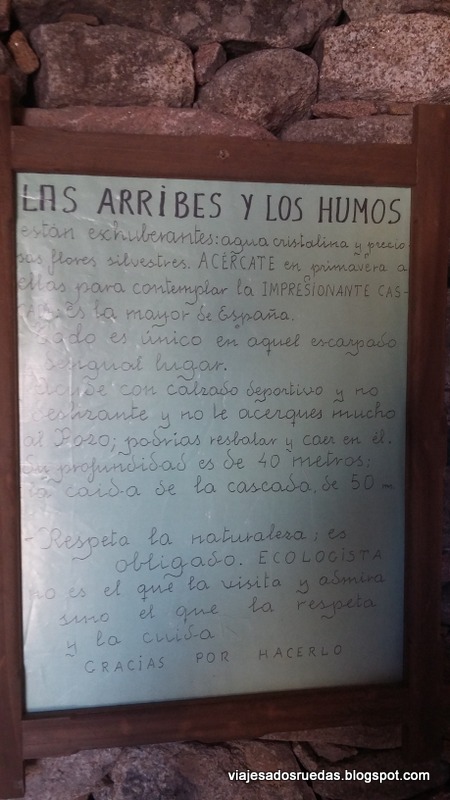 LAS ARRIBES Y LOS HUMOS
están exhuberantes: agua cristalina y precio
sas flores silvestres. ACÉRCATE en primavera a
ellas para contemplar la IMPRESIONANTE CAS-
Es la mayor de España.
Todo es único en aquel escarpado
lugar.
con calzado deportivo y no
deslizante y no te acerques mucho
al Pozo; podrías resbalar y caer en él.
Su profundidad es de 40 metros;
la caida de la cascada, de 50 m
- Respeta la naturaleza; es
obligado. ECOLOGISTA
no es el que la visita y admira
sino el que la respeta
y la cuida
GRACIAS POR HACERLO
viajesadosruedas.blogspot.com